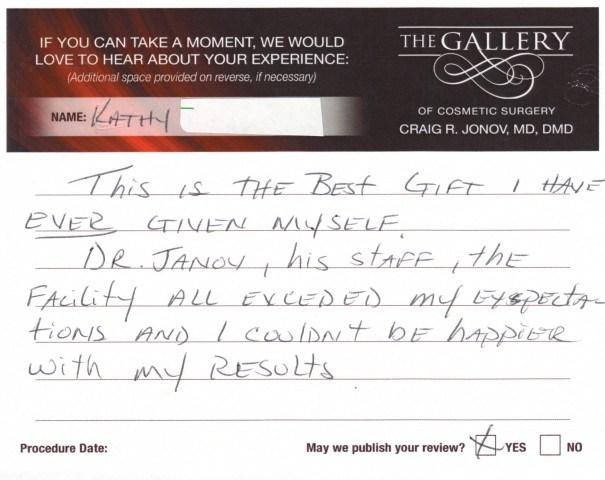 IF YOU CAN TAKE A MOMENT, WE WOULD
LOVE TO HEAR ABOUT YOUR EXPERIENCE:
(Additional space provided on reverse, if necessary)
NAME: KATHY
THE GALLERY
OF COSMETIC SURGERY
CRAIG R. JONOV, MD, DMD
This is THE BEST GIFT I HAVE
EVER GIVEN MYSELF.
DR. JANOV, his STAFF, THE
FACILITY ALL EXCEDED MY EXPECTA-
TIONS AND I COULDN'T BE HAPPIER
WITH MY RESULTS
Procedure Date:
May we publish your review? X YES NO